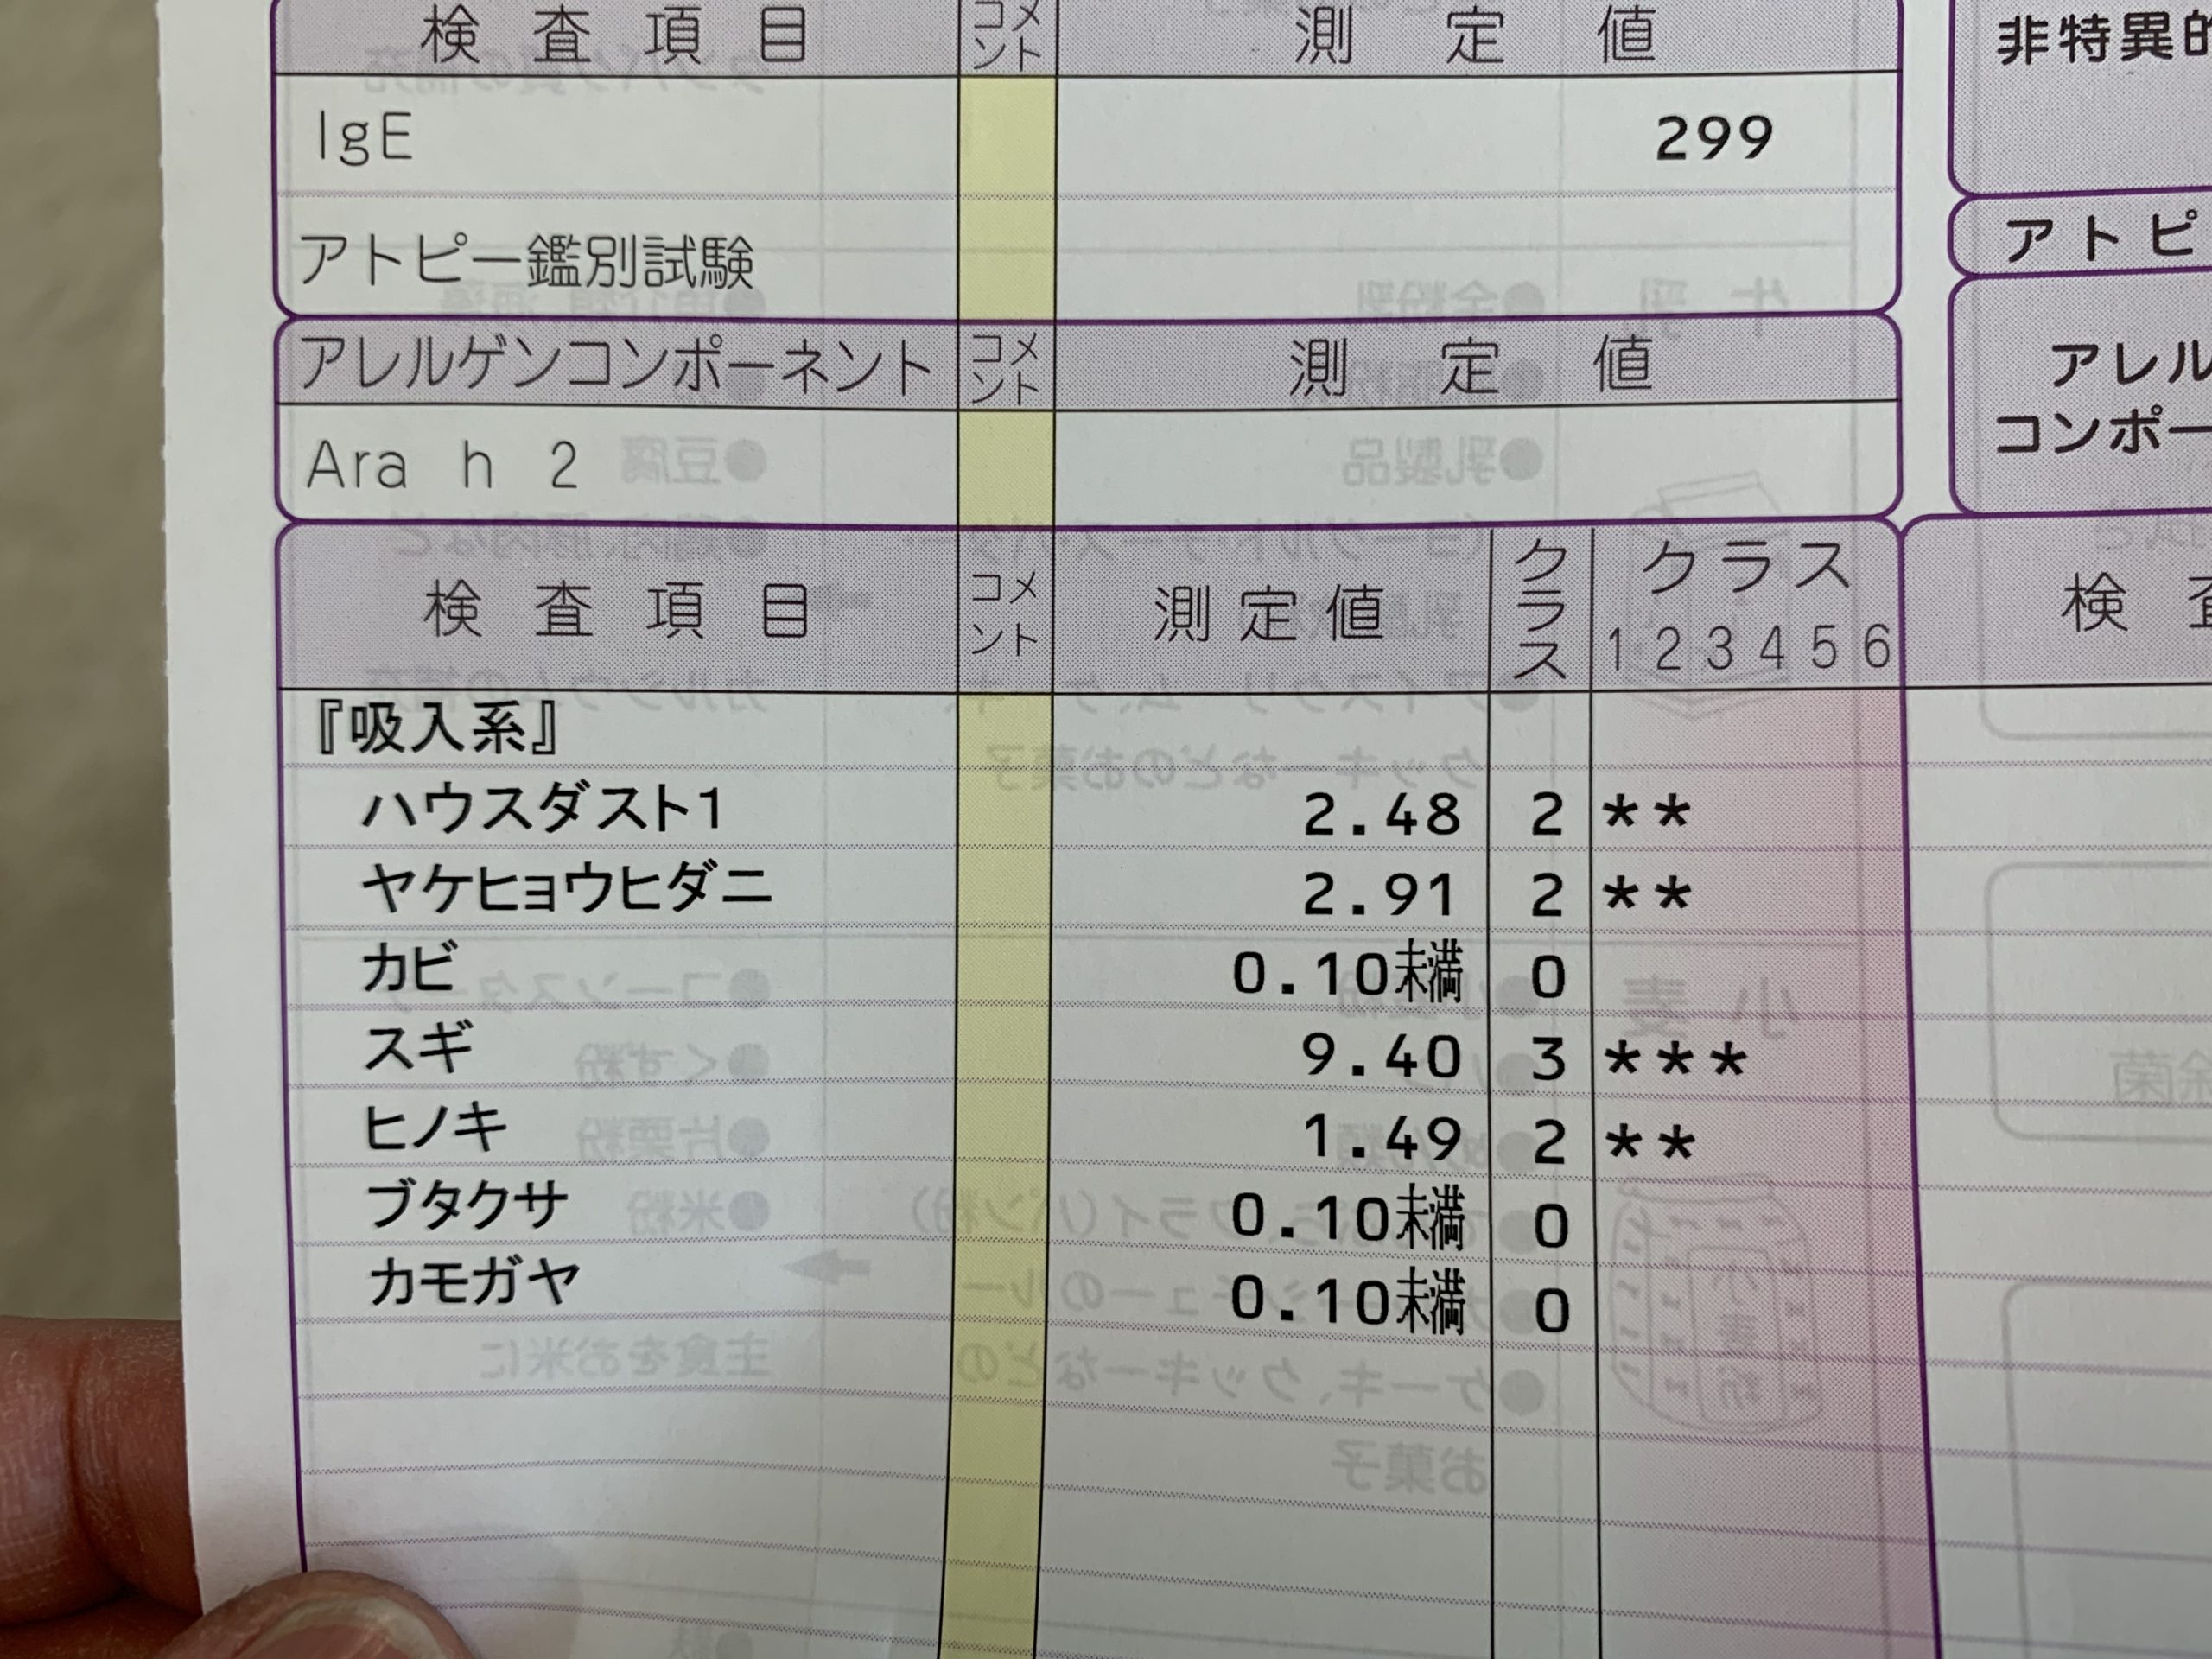 検査項目 コメント 測定値
IgE 299
アトピー鑑別試験
アレルゲンコンポーネント コメント 測定値
Ara h 2
検査項目 コメント 測定値 クラス クラス
1 2 3 4 5 6
『吸入系』
ハウスダスト1 2.48 2 **
ヤケヒョウヒダニ 2.91 2 **
カビ 0.10未満 0
スギ 9.40 3 ***
ヒノキ 1.49 2 **
ブタクサ 0.10未満 0
カモガヤ 0.10未満 0
非特異的
アトピ
アレル
コンポー
検